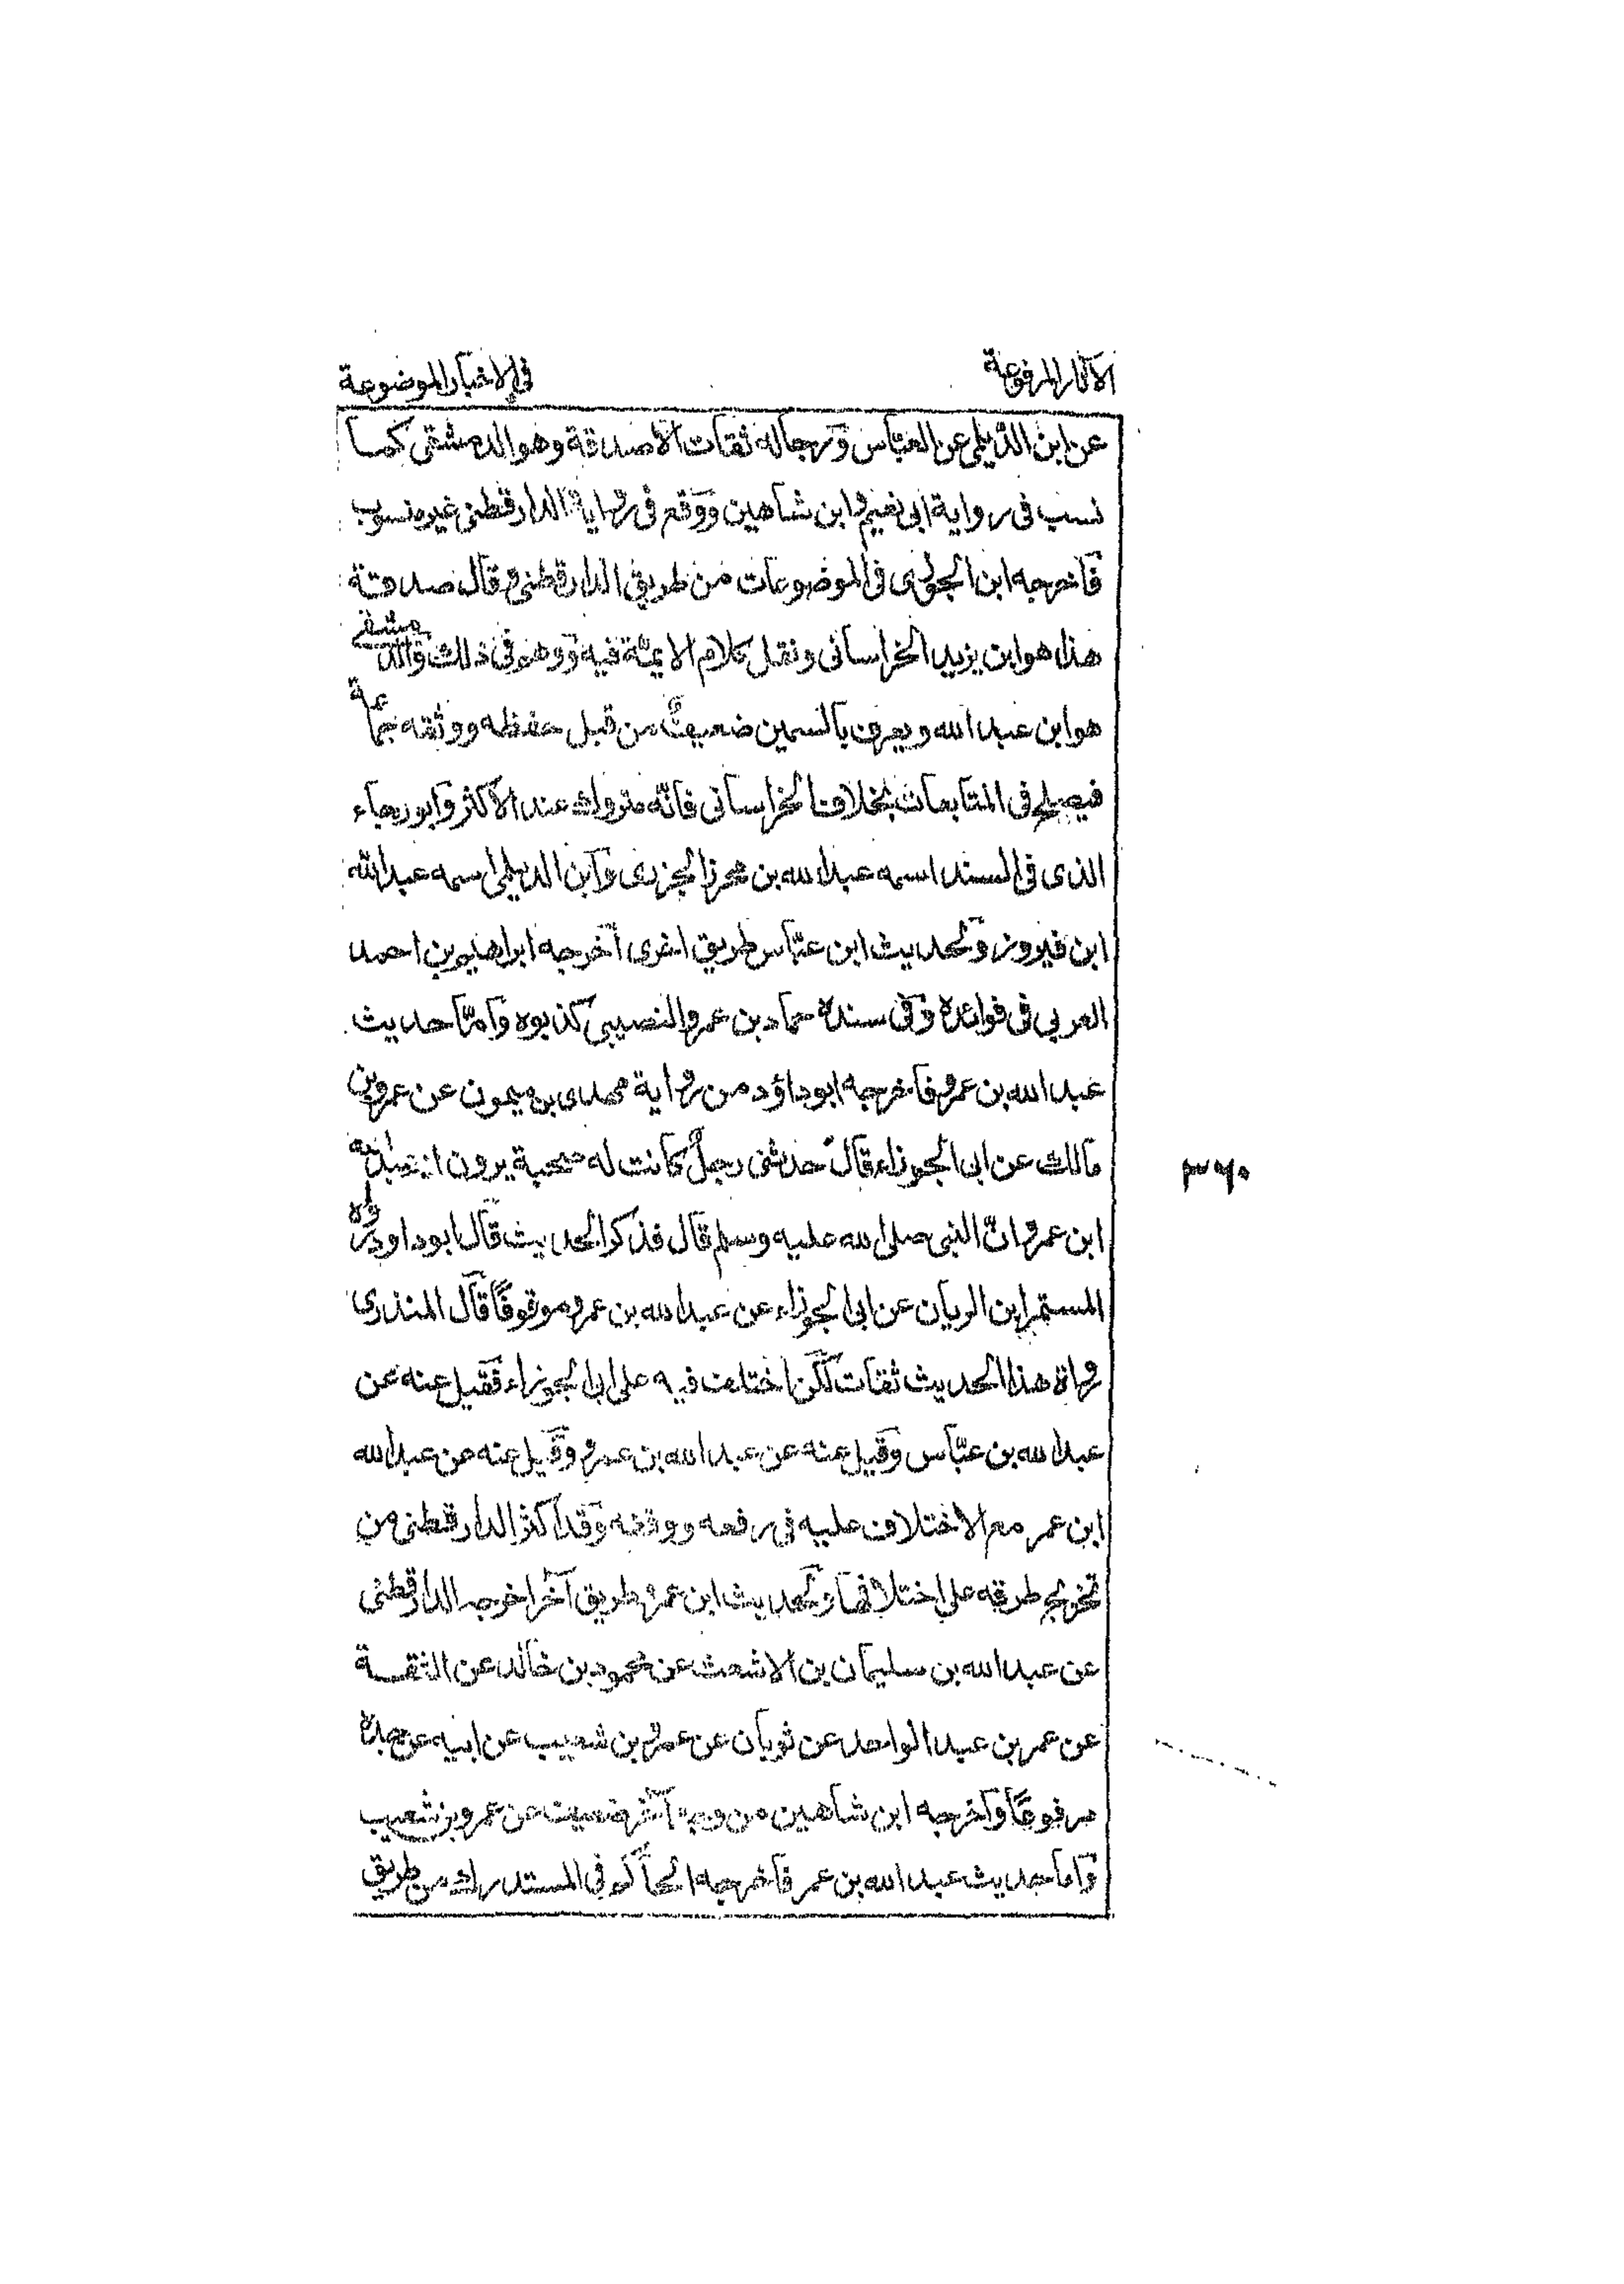 الآثار المرفوعة
فى الاخبار الموضوعة
عن ابن الديلمى عن العبّاس ورجاله ثقات الا صدقة وهو الدمشقى كما
نسب فى رواية ابى نعيم وابن شاهين ووقع فى رواية الدارقطنى غير منسوب
فاخرجه ابن الجوزى فى الموضوعات من طريق الدارقطنى وقال صدقة
هذا هو ابن يزيد الخراسانى ونقل كلام الايمّة فيه ووهم فى ذلك والدمشقى
هو ابن عبد الله ويعرف بالسمين ضعيف من قبل حفظه ووثقه جماعة
فيصلح فى المتابعات بخلاف الخراسانى فانّه متروك عند الاكثر وابو رجاء
الذى فى السند اسمه عبد الله بن محرز الجزرى وابن الديلمى اسمه عبد الله
ابن فيروز ولحديث ابن عبّاس طريق اخرى اخرجه ابراهيم بن احمد
العربي فى فوائده وفى سنده حماد بن عمرو النصيبى كذبوه وامّا حديث
عبد الله بن عمرو فاخرجه ابوداؤد من رواية مهدى بن ميمون عن عمرو بن
مالك عن ابى الجوزاء قال حدثنى رجلٌ كانت له صحبة يرون انه عبد الله
ابن عمرو انّ النبى صلى الله عليه وسلم قال فذكر الحديث قال ابو داود رواه
المستمر ابن الريان عن ابى الجوزاء عن عبد الله بن عمرو موقوفًا قال المنذرى
رواة هذا الحديث ثقات لكن اختلف فيه على ابى الجوزاء فقيل عنه عن
عبد الله بن عبّاس وقيل عنه عن عبد الله بن عمرو وقيل عنه عن عبد الله
ابن عمر مع الاختلاف عليه فى رفعه ووقفه وقد اكثر الدارقطنى من
تخريج طرقه على اختلافها ولحديث ابن عمرو طريق آخر اخرجه الدارقطنى
عن عبد الله بن سليمان بن الاشعث عن محمود بن خالد عن الثقة
عن عمر بن عبد الواحد عن ثوبان عن عمرو بن شعيب عن ابيه عن جده
مرفوعًا واخرجه ابن شاهين من وجه آخر ضعيف عن عمرو بن شعيب
واما حديث عبد الله بن عمر فاخرجه الحاكم فى المستدرك من طريق